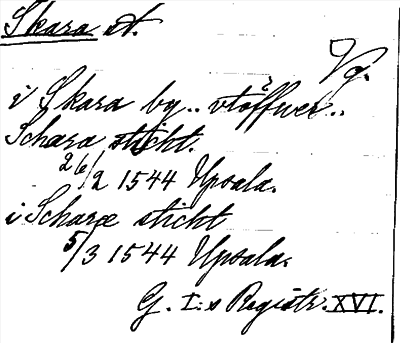 Skara st.
Vg.
i Skara by.. vtöffwer..
Schara sticht.
26/2 1544 Upsala.
i Scharæ sticht
5/3 1544 Upsala.
G. I:s Registr. XVI.